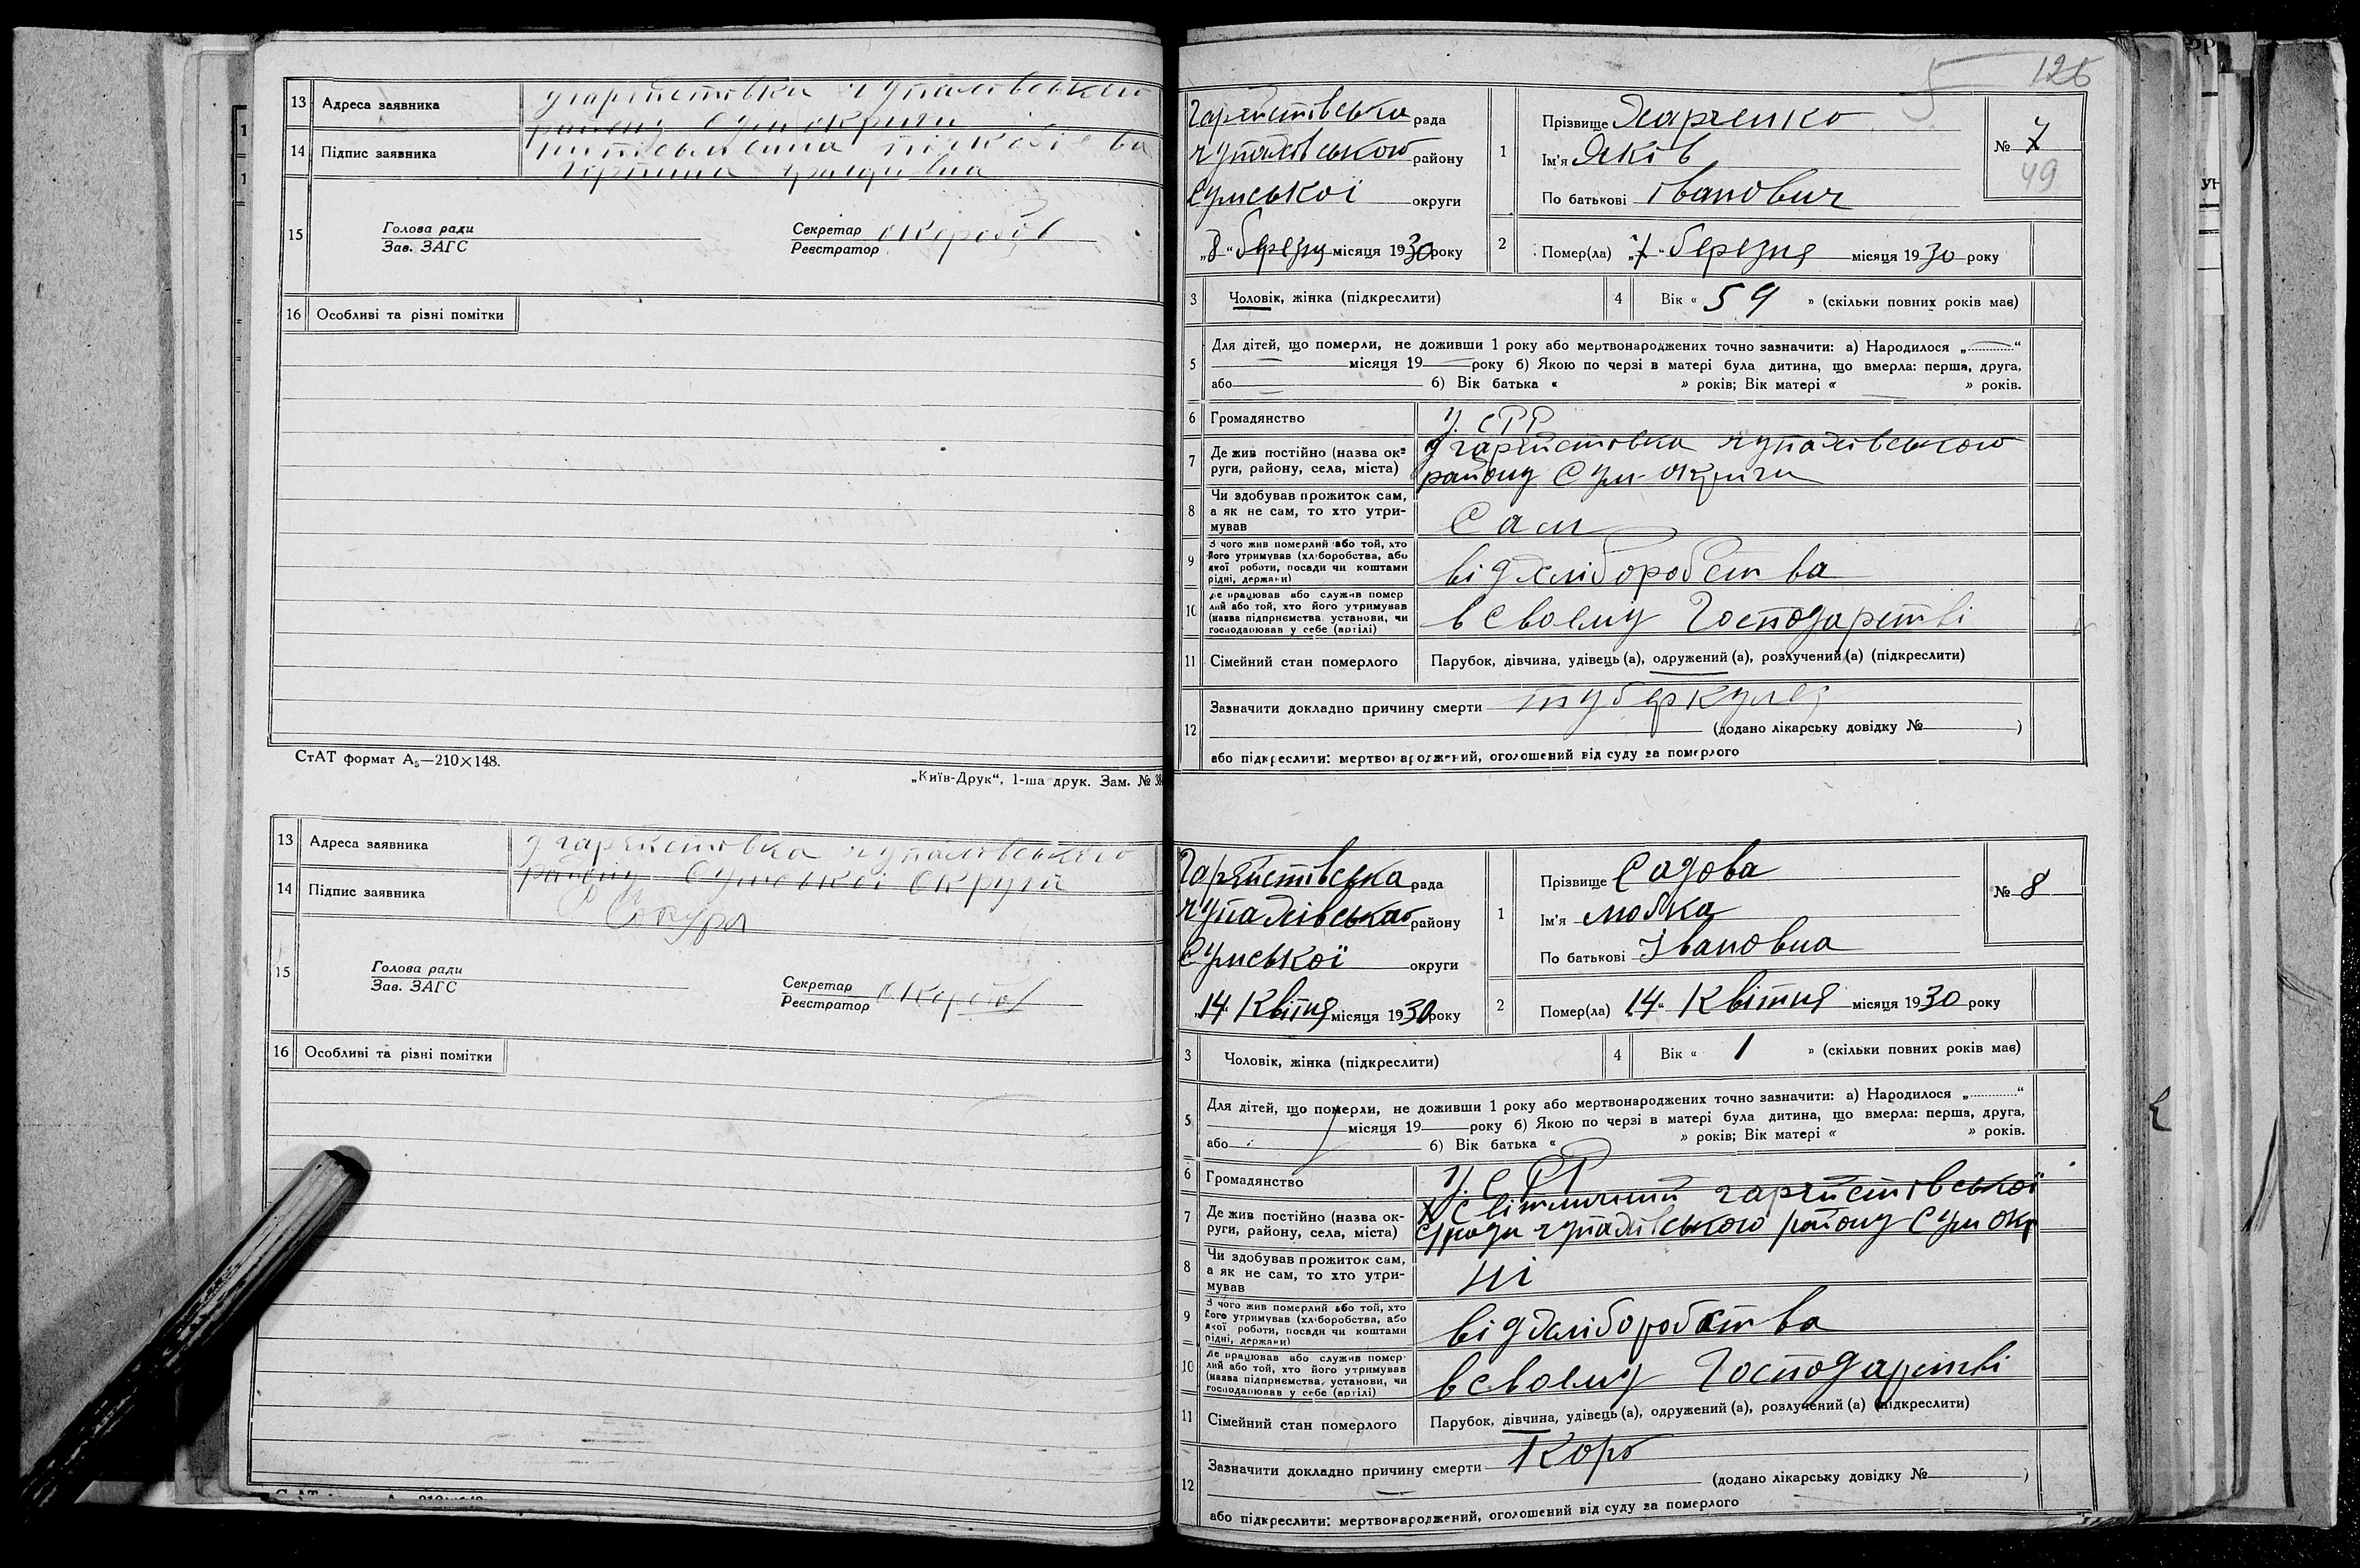 13 Адреса заявника
14 Підпис заявника
15 Голова ради
Зав. ЗАГС
Секретар
Реєстратор
16 Особливі та різні помітки
СтАТ формат А₅—210×148.
„Київ-Друк“, 1-ша друк. Зам. №
13 Адреса заявника чупахівського
району Сумської округи
14 Підпис заявника
15 Голова ради
Зав. ЗАГС
Секретар
Реєстратор
16 Особливі та різні помітки
5 126
рада
чупахівського району
Сумської округи
„8“ березня місяця 1930 року
1 Прізвище Харченко
Ім'я Яків
По батькові Іванович
№ 7
49
2 Помер(ла) „7“ березня місяця 1930 року
3 Чоловік, жінка (підкреслити)
4 Вік « 59 » (скільки повних років має)
5 Для дітей, що померли, не доживши 1 року або мертвонароджених точно зазначити: а) Народилося „ “
місяця 19 року б) Якою по черзі в матері була дитина, що вмерла: перша, друга,
або б) Вік батька « » років; Вік матері « » років.
6 Громадянство У.СРР
7 Де жив постійно (назва ок-
руги, району, села, міста) чупахівського
району Сум. округи
8 Чи здобував прожиток сам,
а як не сам, то хто утри-
мував Сам
9 З чого жив померлий або той, хто
його утримував (хліборобства, або
якої роботи, посади чи коштами
рідні, держави) від хліборобства
10 Де працював або служив помер
лий або той, хто його утримував
(назва підприємства, установи, чи
господарював у себе (артілі) в своєму господарстві
11 Сімейний стан померлого Парубок, дівчина, удівець (а), одружений (а), розлучений (а) (підкреслити)
12 Зазначити докладно причину смерти туберкульоз
(додано лікарську довідку № )
або підкреслити: мертвонароджений, оголошений від суду за померлого
рада
району
Сумської округи
„14“ Квітня місяця 1930 року
1 Прізвище Садова
Ім'я Любка
По батькові Івановна
№ 8
2 Помер(ла) 14“ Квітня місяця 1930 року
3 Чоловік, жінка (підкреслити)
4 Вік « 1 » (скільки повних років має)
5 Для дітей, що померли, не доживши 1 року або мертвонароджених точно зазначити: а) Народилося „ “
місяця 19 року б) Якою по черзі в матері була дитина, що вмерла: перша, друга,
або б) Вік батька « » років; Вік матері « » років.
6 Громадянство У.СРР
7 Де жив постійно (назва ок-
руги, району, села, міста)
с/ради чупахівського району Сум окр
8 Чи здобував прожиток сам,
а як не сам, то хто утри-
мував ні
9 З чого жив померлий або той, хто
його утримував (хліборобства, або
якої роботи, посади чи коштами
рідні, держави) від хліборобства
10 Де працював або служив помер-
лий або той, хто його утримував
(назва підприємства, установи, чи
господарював у себе (артілі) в своєму господарстві
11 Сімейний стан померлого Парубок, дівчина, удівець (а), одружений (а), розлучений (а) (підкреслити)
12 Зазначити докладно причину смерти Кор
(додано лікарську довідку № )
або підкреслити: мертвонароджений, оголошений від суду за померлого